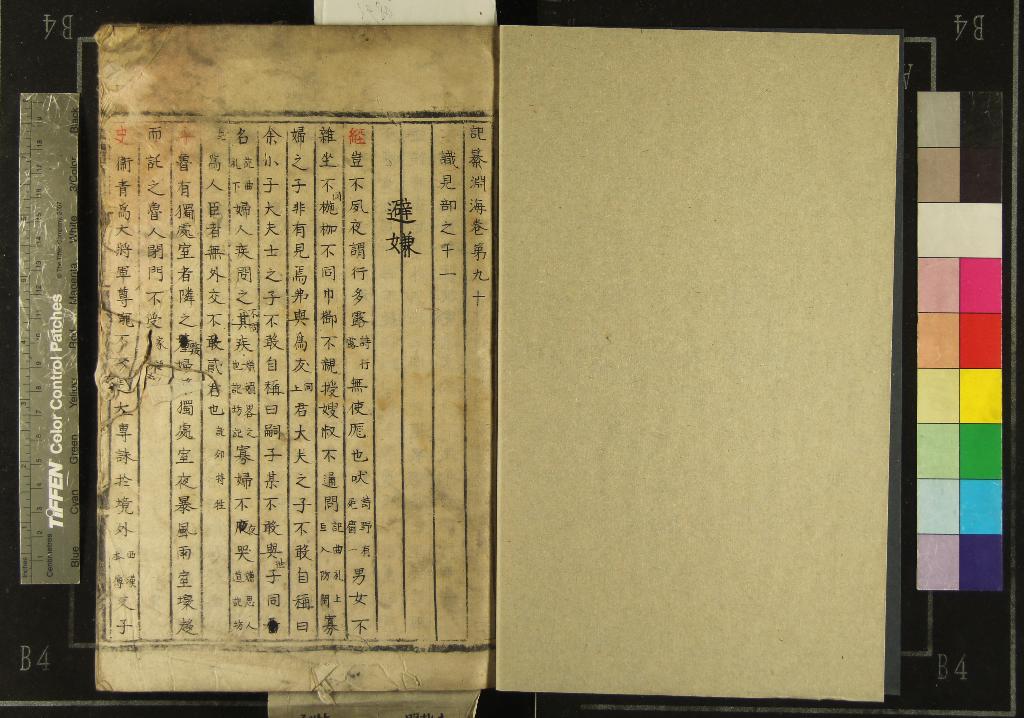 記纂淵海卷第九十
識見部之千一
避嫌
經 豈不夙夜謂行多露 詩行露 無使尨也吠 詩野有死麕一 男女不
雜坐不同椸枷不同巾櫛不親授嫂叔不通問 記曲礼上 寡
婦之子非有見焉弗與爲友 同上 君大夫之子不敢自稱曰
余小子大夫士之子不敢自稱曰嗣子某不敢與世子同
名 記曲礼下 婦人疾問之不問其疾 寡婦不夜哭
爲人臣者無外交不敢貳君也 記郊特牲
魯有獨處室者隣之 婦 獨處室夜暴風雨室壞趨
而託之魯人閉門不
史 衛青爲大將軍尊寵 專誅於境外 西漢本傳
TIFFEN Color Control Patches
© The Tiffen Company, 2007
Blue Cyan Green Yellow Red Magenta White 3/Color Black
Inches
Centimetres
B4
B4
B4
B4